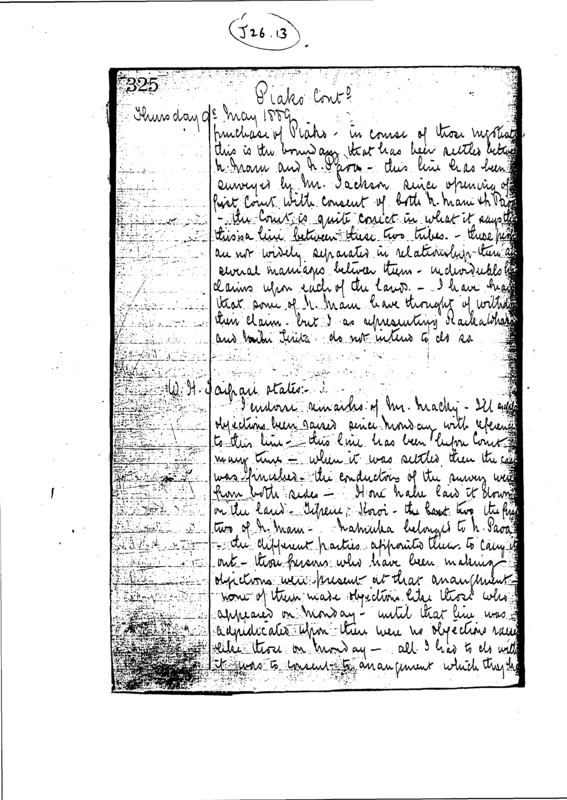 J26.13
325
Piako Contd
Thursday 9th May 1889
purchase of Piako - in course of those
this is the boundary that has been settled
N. Maru and N. Paoa - this line has been
surveyed by Mr. Jackson since opening of
first Court with consent of both N. Maru & N. Paoa
- the Court is quite correct in what it says
this is a line between these two tribes. - these
are not widely separated in relationship - there
several marriages between them - individuals
claims upon each of the lands. - I have
that some of N. Maru have thought of
their claim. but I as representing
and do not intend to do so
W. H. Taipari states:-
I endorse remarks of Mr. Macky -
objections been raised since Monday with reference
to this line - this line has been before Court
many times - when it was settled then the
was finished - the conductors of the survey were
from both sides - Hone laid it down
on the land - the two the
two of N. Maru - belongs to N. Paoa
- the different parties appointed them to carry it
out - those persons who have been making
objections were present at that arrangement
none of them made objections like those who
appeared on Monday - until that line was
adjudicated upon there were no objections
like those on Monday - all I had to do with
it was to consent to arrangement which they